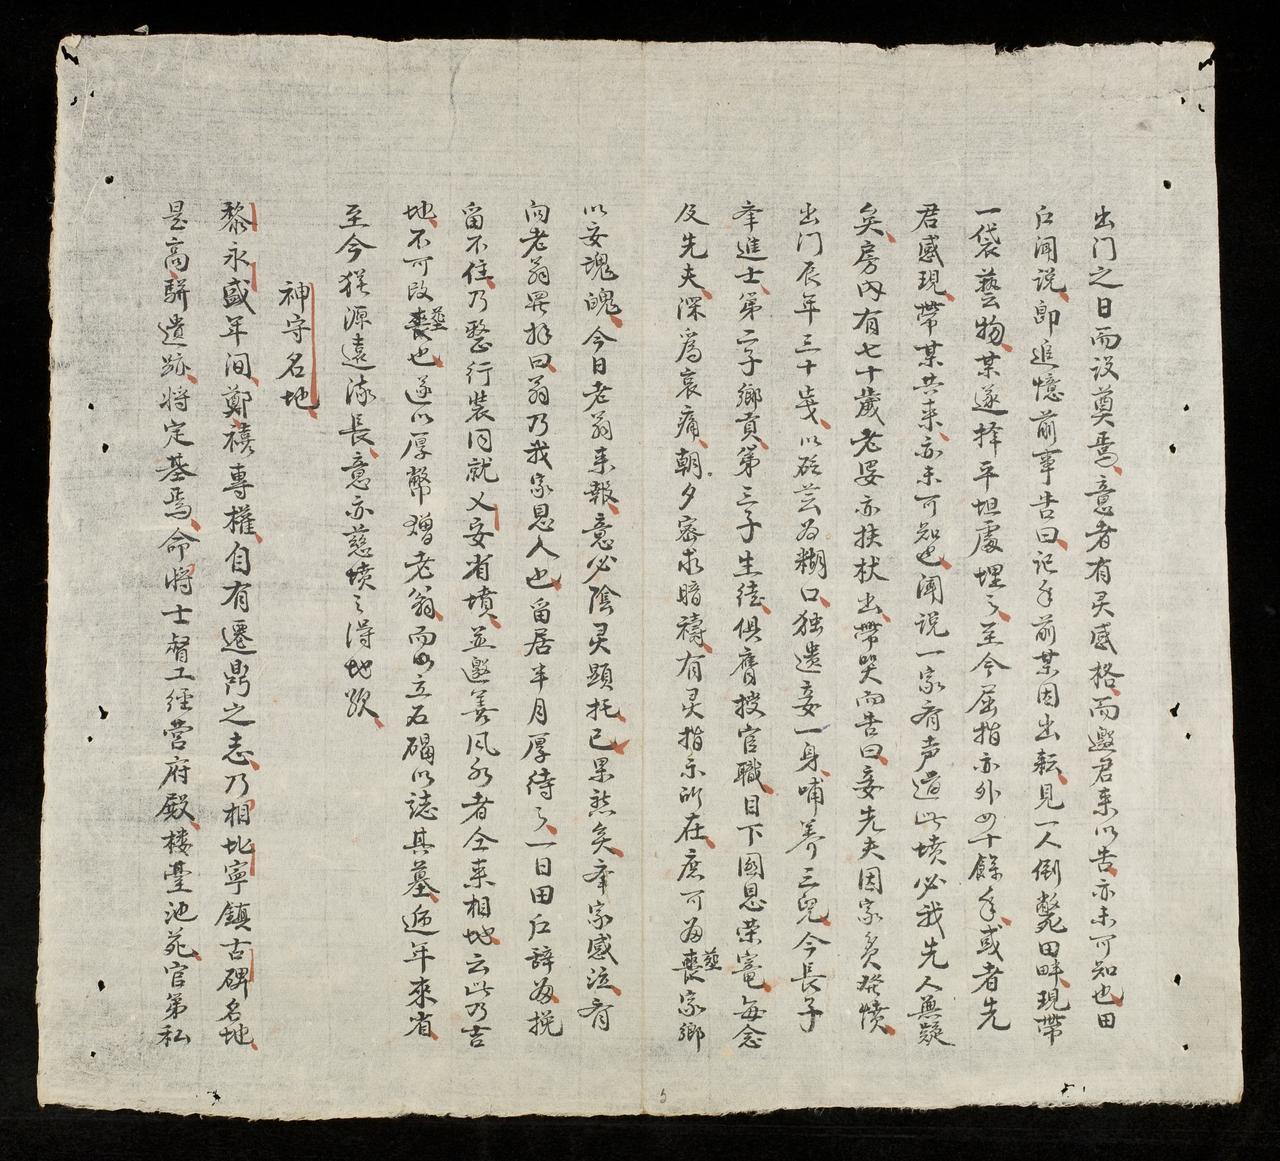 出门之日而设奠焉意者有灵感格而邀君来以告亦未可知也田
户闻说即追憶前事告曰记年前某因出耘見一人倒斃田畔現帶
一袋藝物某遂择平坦處埋之至今屈指亦外四十餘年或者先
君感現帶某共来亦未可知也闻说一家有声道此墳必我先人無疑
矣房内有七十歲老婆亦扶杖出帶哭而告曰妾先夫因家貧發憤
出门辰年三十歲以砍芸为糊口独遺妾一身哺养三兒今長子
举進士第二子鄉貢第三子生徒俱膺授官職目下國恩荣寵每念
及先夫深爲哀痛朝夕密求暗禱有灵指示所在庶可为葬家鄉
以安魂魄今日老翁来報意必陰灵顕托已果然矣举家感泣有
向老翁羅拜曰翁乃我家恩人也留居半月厚待之一日田户辞为挽
留不住乃整行装同就乂安省墳並邀善风水者仝来相地云此乃吉
地不可改葬也遂以厚幣赠老翁而四立石碣以誌其墓近年來省
至今猶源遠流長意亦慈墳之得地欤
神守名地
黎永盛年间鄭禧專權自有遷鼎之志乃相北寧鎮古碑名地
是高駢遺跡将定基焉命將士督工經营府殿楼臺池苑官第私